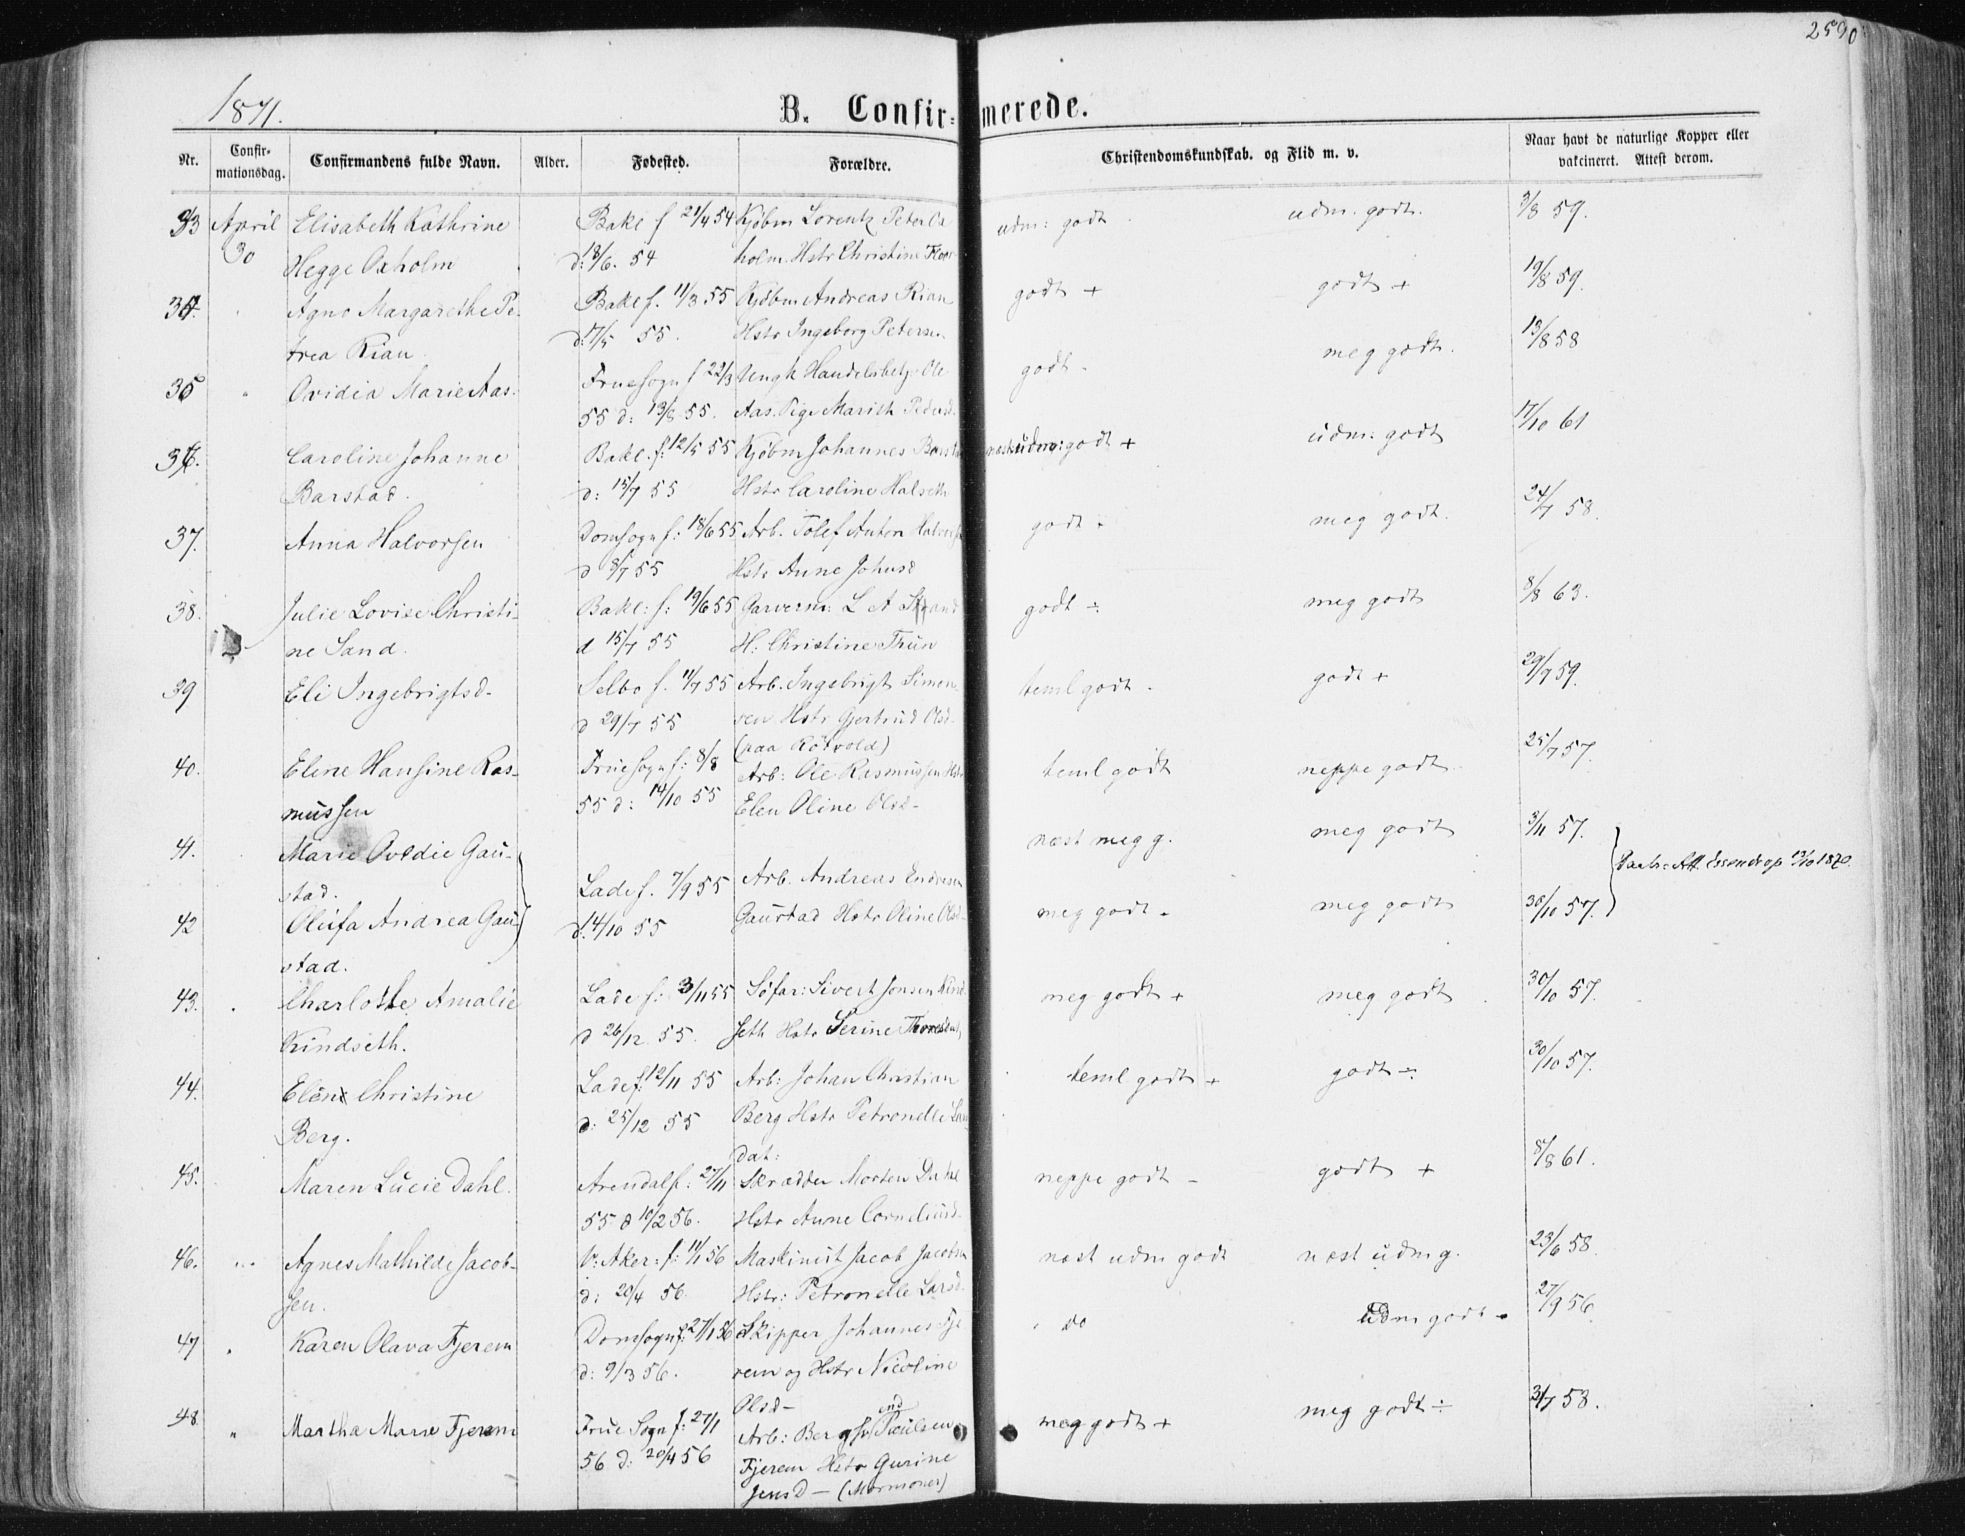 2590
1871.
B. Confirmerede.
Nr. Confirmationsdag. Confirmandens fulde Navn. Alder. Fødested. Forældre. Christendomskundskab. og Flid m. v. Naar havt de naturlige Kopper eller vakcineret. Attest derom.
33 April Elisabeth Kathrine Bakl f 21/4 54 Kjøbm Lorentz Peter Ox udm: godt udm. godt. 3/8 59.
30 Hegge Oxholm d: 18/6. 54 holm. Hstr Christine
34. Agno Margarethe Pe- Bakl f. 11/3 55 Kjøbm Andreas Rian godt + godt + 19/8 59.
trea Rian. d: 17/5 55. Hstr Ingeborg Petersen
35 " Ovidia Marie Aas. Fruesogn f 22/3 Ungk Handelsbetj: Ole godt - meg godt. 13/8 58
55 d: 13/8 55. Aas. Pige Marith Pedersd.
36. Caroline Johanne Bakl. f: 12/5 55 Kjøbm Johannes Barstad udm: godt + udm: godt 17/10 61
Barstad. d: 15/7 55 Hstr Caroline Halseth
37. Anna Halvorsen Domsogn f: 18/6 55 Arb. Tolef Anton godt - meg godt. 24/7 58.
d 8/7 55 Hstr Anne Johnsd
38. Julie Lovise Christi- Bakl: f: 19/6 55 Garverm: L A Sand godt ÷ meg godt 8/8 63.
ne Sand. d 15/7 55 H: Christine Thun
39 Eli Ingebrigtsd- Selbo f. 11/7 55 Arb. Ingebrigt Simon- teml godt - godt + 29/7 59.
d 29/7 55 sen Hstr Gjertrud Olsd-
(paa Rotvold)
40. Eline Hansine Ras- Fruesogn f: 8/8 Arb: Ole Rasmussen Hstr teml godt neppe godt 25/7 57.
mussen 55 d: 14/10 55 Elen Oline Olsd-
41. Marie Ovedie Gau- næst meg g. meg godt 3/11 57.
stad. Lade f. 7/9 55 Arb. Andreas Endresen Att. Essendrop 13/10 1870.
42 Olufa Andrea Gau- d: 14/10 55 Gaustad Hstr Oline Olsd- meg godt - meg godt 30/10 57.
stad.
43. Charlotte Amalie Lade f: 3/11 55 Søfar: Sivert Jonsen Kind- meg godt + meg godt 30/10 57.
Kindseth. d 26/12 55. seth Hstr Serine
44. Elen Christine Lade f: 12/11 55 Arb: Johan Christian teml godt + godt ÷ 30/10 57.
Berg. d: 25/12 55 Berg Hstr Petronelle
dat:
45. Maren Lucie Dahl. Arendal f: 27/11 Skrædder Morten Dahl neppe godt - godt + 8/8 61.
55 d 10/2 56. Hstr Anne Corneliusd-
46. Agnes Mathilde Jacob- V: Aker: f: 11/1 56 Maskinist Jacob Jacobsen næst udm godt næst udm g. 23/6 58.
sen. d: 20/4 56. Hstr: Petronelle Larsd.
47 " Karen Olava Fjerem Domsogn f: 27/1 56 Skipper Johannes Fje do udm godt - 27/9 56.
d: 9/3 56. rem og Hstr Nicoline
Olsd-
48 " Martha Marie Fjerem Frue Sogn f: 27/1 Arb: Paulsen meg godt + meg godt ÷ 3/7 58.
56 d: 20/4 56 Fjerem Hstr Gurine
Jensd - (Mormoner)